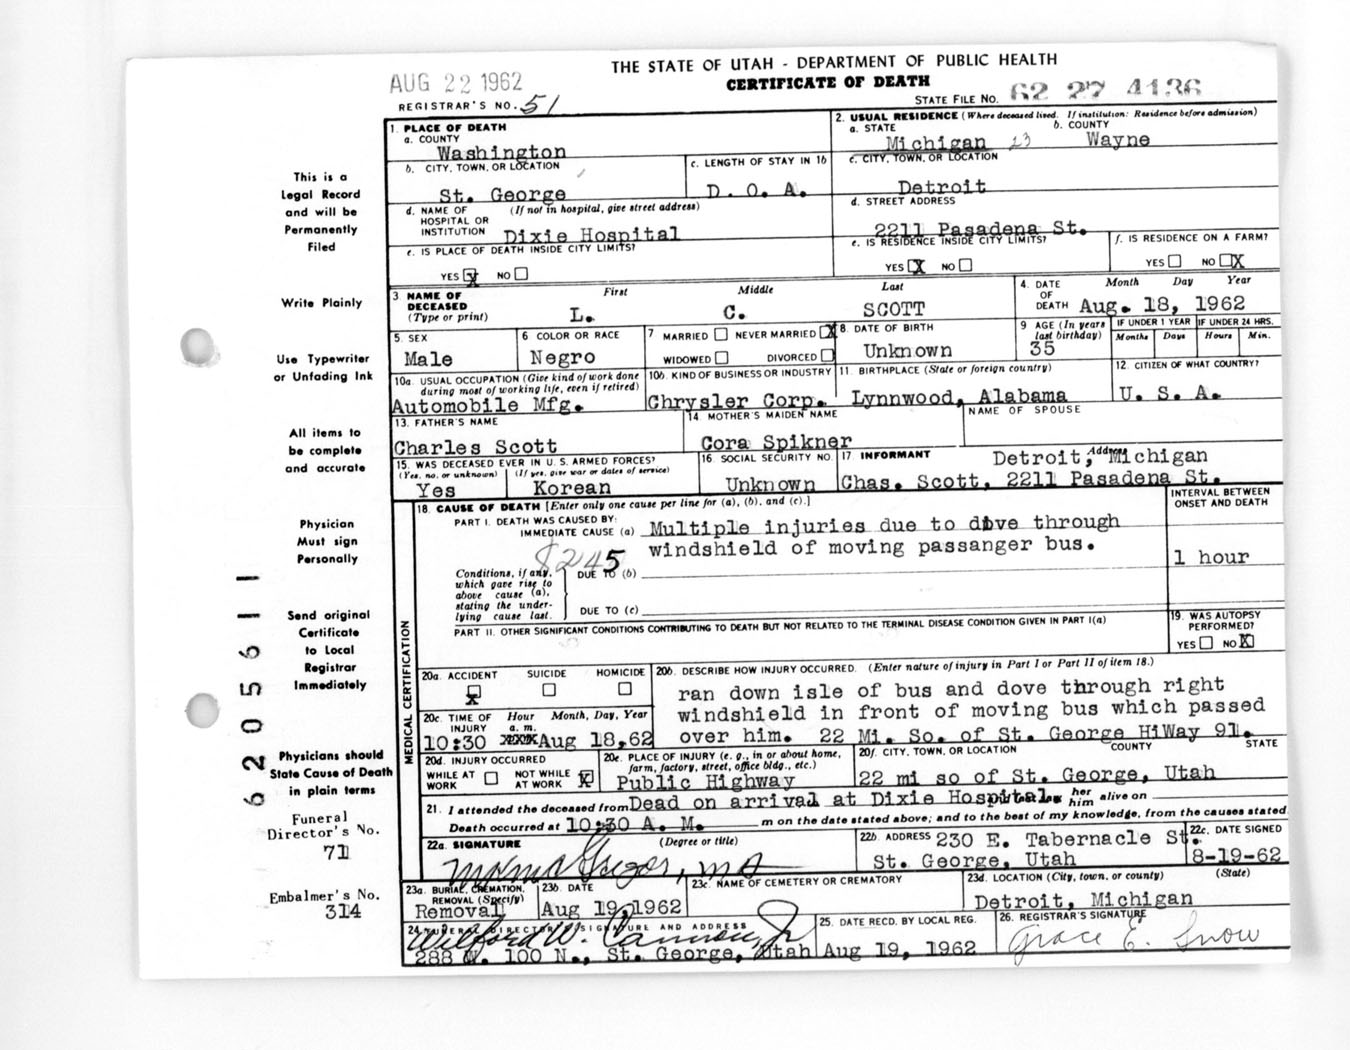 THE STATE OF UTAH - DEPARTMENT OF PUBLIC HEALTH
AUG 22 1962
CERTIFICATE OF DEATH
REGISTRAR'S NO. 51
STATE FILE NO. 62 27 4136
1. PLACE OF DEATH
a. COUNTY
Washington
2. USUAL RESIDENCE (Where deceased lived. If institution: Residence before admission)
a. STATE b. COUNTY
Michigan 23 Wayne
b. CITY, TOWN, OR LOCATION
St. George
c. LENGTH OF STAY IN 1b
D. O. A.
c. CITY, TOWN, OR LOCATION
Detroit
d. NAME OF HOSPITAL OR INSTITUTION (If not in hospital, give street address)
Dixie Hospital
d. STREET ADDRESS
2211 Pasadena St.
e. IS PLACE OF DEATH INSIDE CITY LIMITS?
YES X NO
e. IS RESIDENCE INSIDE CITY LIMITS?
YES X NO
f. IS RESIDENCE ON A FARM?
YES NO X
3. NAME OF DECEASED (Type or print)
First Middle Last
L. C. SCOTT
4. DATE OF DEATH Month Day Year
Aug. 18, 1962
5. SEX
Male
6 COLOR OR RACE
Negro
7 MARRIED NEVER MARRIED X
WIDOWED DIVORCED
8. DATE OF BIRTH
Unknown
9 AGE (In years last birthday)
35
IF UNDER 1 YEAR
Months Days
IF UNDER 24 HRS.
Hours Min.
10a. USUAL OCCUPATION (Give kind of work done during most of working life, even if retired)
Automobile Mfg.
10b. KIND OF BUSINESS OR INDUSTRY
Chrysler Corp.
11. BIRTHPLACE (State or foreign country)
Lynnwood, Alabama
12. CITIZEN OF WHAT COUNTRY?
U. S. A.
13. FATHER'S NAME
Charles Scott
14. MOTHER'S MAIDEN NAME
Cora Spikner
NAME OF SPOUSE
15. WAS DECEASED EVER IN U. S. ARMED FORCES?
(Yes, no, or unknown) (If yes, give war or dates of service)
Yes Korean
16 SOCIAL SECURITY NO.
Unknown
17 INFORMANT Address
Detroit, Michigan
Chas. Scott, 2211 Pasadena St.
18. CAUSE OF DEATH [Enter only one cause per line for (a), (b), and (c).]
INTERVAL BETWEEN ONSET AND DEATH
PART I. DEATH WAS CAUSED BY:
IMMEDIATE CAUSE (a) Multiple injuries due to dove through
windshield of moving passanger bus.
1 hour
8245
Conditions, if any, which gave rise to above cause (a), stating the underlying cause last.
DUE TO (b)
DUE TO (c)
PART II. OTHER SIGNIFICANT CONDITIONS CONTRIBUTING TO DEATH BUT NOT RELATED TO THE TERMINAL DISEASE CONDITION GIVEN IN PART I(a)
19. WAS AUTOPSY PERFORMED?
YES NO X
MEDICAL CERTIFICATION
20a. ACCIDENT SUICIDE HOMICIDE
X
20b. DESCRIBE HOW INJURY OCCURRED. (Enter nature of injury in Part I or Part II of item 18.)
ran down isle of bus and dove through right
windshield in front of moving bus which passed
over him. 22 Mi. So. of St. George HiWay 91.
20c. TIME OF INJURY Hour Month, Day, Year
a. m.
10:30 Aug 18,62
20d. INJURY OCCURRED
WHILE AT WORK NOT WHILE AT WORK X
20e. PLACE OF INJURY (e. g., in or about home, farm, factory, street, office bldg., etc.)
Public Highway
20f. CITY, TOWN, OR LOCATION COUNTY STATE
22 mi so of St. George, Utah
21. I attended the deceased from Dead on arrival at Dixie Hospital. her him alive on
Death occurred at 10:30 A. M. m on the date stated above; and to the best of my knowledge, from the causes stated.
22a. SIGNATURE (Degree or title)
22b. ADDRESS 230 E. Tabernacle St.
St. George, Utah
22c. DATE SIGNED
8-19-62
23a. BURIAL, CREMATION, REMOVAL (Specify)
Removal
23b. DATE
Aug 19,1962
23c. NAME OF CEMETERY OR CREMATORY
23d. LOCATION (City, town, or county) (State)
Detroit, Michigan
24. FUNERAL DIRECTOR'S SIGNATURE AND ADDRESS
Wilford W. Cannon, Jr
288 W. 100 N., St. George, Utah
25. DATE RECD. BY LOCAL REG.
Aug 19, 1962
26. REGISTRAR'S SIGNATURE
Grace E. Snow
This is a
Legal Record
and will be
Permanently
Filed
Write Plainly
Use Typewriter
or Unfading Ink
All items to
be complete
and accurate
Physician
Must sign
Personally
Send original
Certificate
to Local
Registrar
Immediately
Physicians should
State Cause of Death
in plain terms
Funeral
Director's No.
71
Embalmer's No.
314
6205611